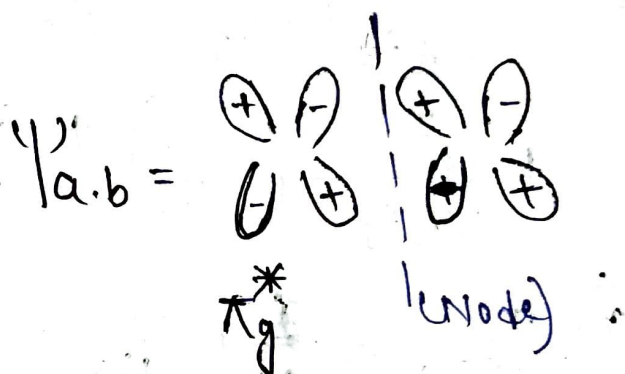 + - + -
Ψa.b =
- + + +
π*g (Node)